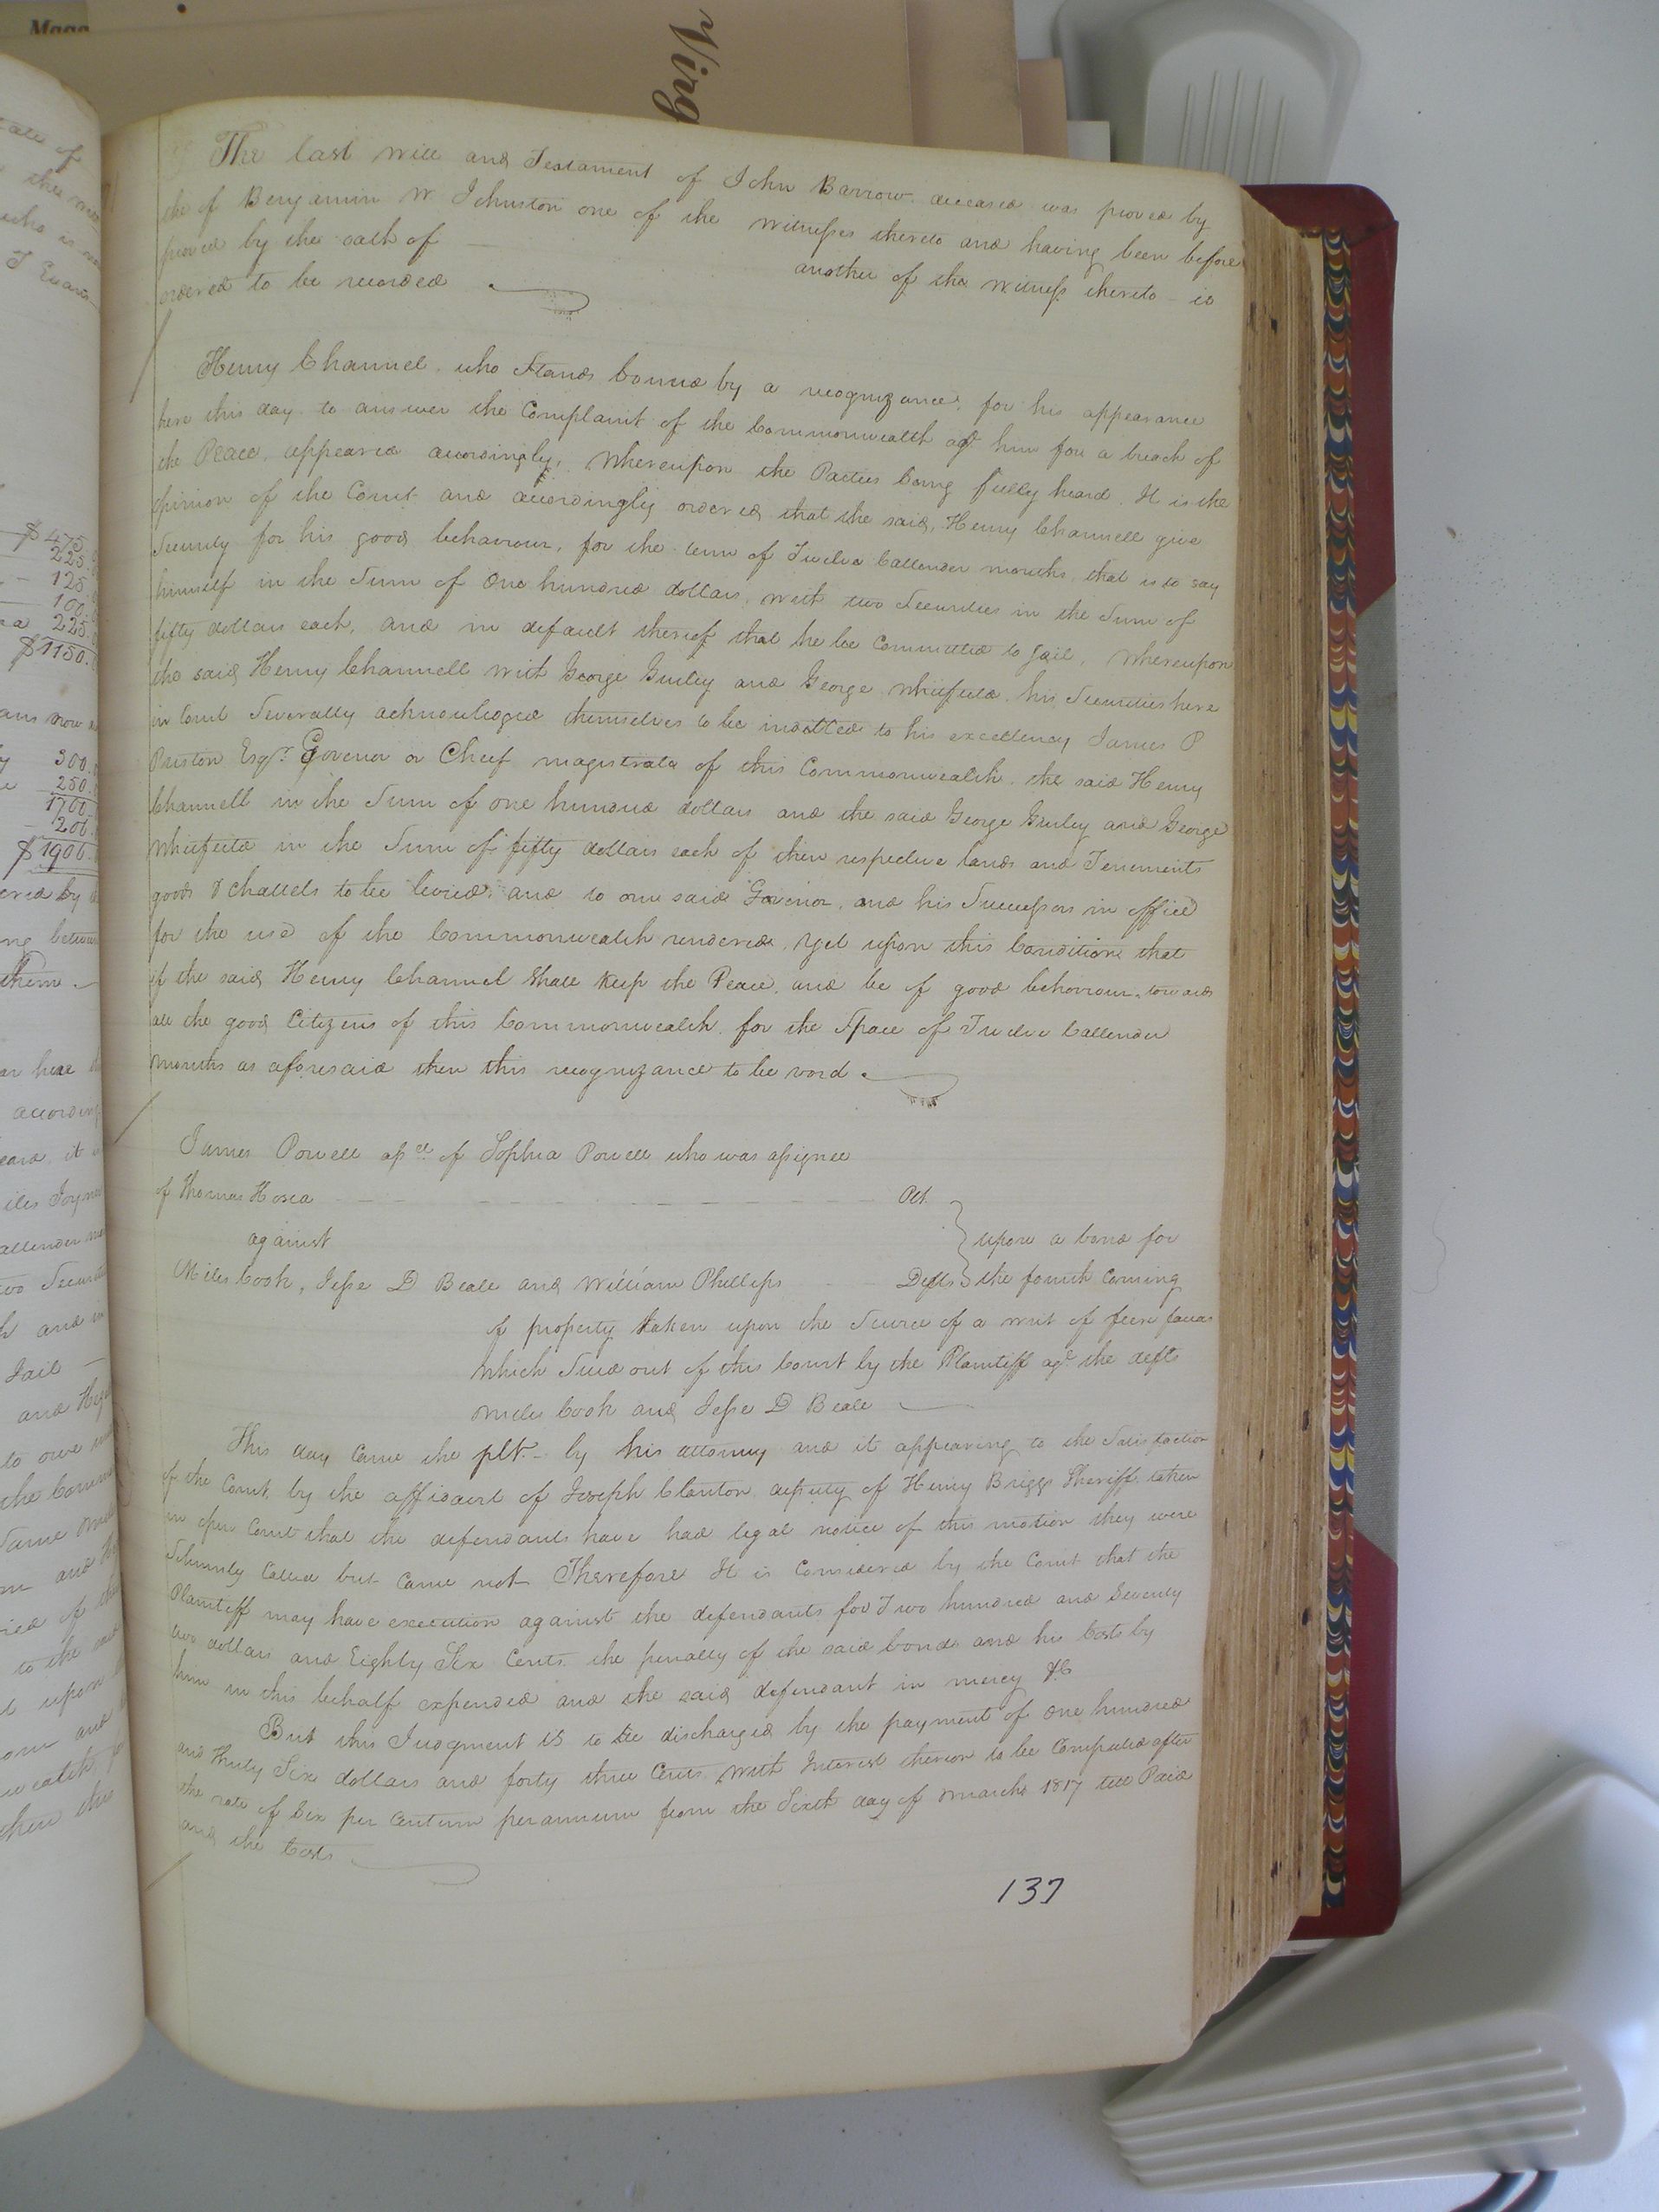 Virg
The last will and Testament of John Barrow deceased was proved by
the of Benjamin W Johnston one of the Witnesses thereto and having been before
proved by the oath of another of the Witness thereto is
ordered to be recorded
Henry Channel, who Stands bound by a recognizance, for his appearance
here this day to answer the Complaint of the Commonwealth agt him for a breach of
the Peace, appeared accordingly, Whereupon the Parties being fully heard. It is the
opinion of the Court and accordingly ordered that the said, Henry Channell give
Security for his good behaviour, for the term of Twelve Callender months, that is to say
himself in the Sum of One hundred dollars, with two Securities in the Sum of
fifty dollars each, and in default thereof that he be Committed to Jail, Whereupon
the said Henry Channell with George Gurley and George Whitfield his Securities here
in Court Severally acknowledged themselves to be indebted to his excellency James P
Preston Esqr. Govenor or Cheif magistrate of this Commonwealth. the said Henry
Channell in the Sum of one hundred dollars and the said George Gurley and George
Whitfield in the Sum of fifty dollars each of their respective lands and Tenements
goods & chattels to be levied and to our said Govenor, and his Successors in office
for the use of the Commonwealth rendered. Yet upon this Condition that
if the said Henry Channel Shall Keep the Peace, and be of good behaviour, towards
all the good Citizens of this Commonwealth, for the Space of Twelve Callender
months as aforesaid then this recognizance to be void.
James Powell assee of Sophia Powell who was assignee
of Thomas Hosea Plt.
against
upon a bond for
Miles Cook, Jesse D Beale and William Phillips Defts the fourth Coming
of property taken upon the Service of a writ of fieri facias
which Sued out of this Court by the Plaintiff agt the defts
Miles Cook and Jesse D Beale
This day Came the plt. by his attorney and it appearing to the Satisfaction
of the Court, by the affidavit of Joseph Clanton deputy of Henry Briggs Sheriff taken
in open Court that the defendants have had legal notice of this motion they were
Solemnly Called but Came not Therefore It is Considered by the Court that the
Plaintiff may have execution against the defendants for Two hundred and Seventy
two dollars and Eighty Six Cents the penalty of the said bond and his Costs by
him in this behalf expended and the said defendant in mercy &c
But this Judgment is to be discharged by the payment of One hundred
and Thirty Six dollars and forty three Cents with Interest thereon to be Computed after
the rate of Six per Centum per annum from the Sixth day of March 1817 till Paid
and the Costs
137